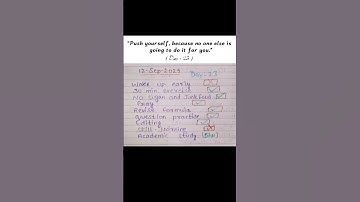 "Push yourself, because no one else is
going to do it for you."
(Day-23)
12-Sep-2025
Day-23
Wake up early
30 min exercise
No Sugar and Junkfood
Pray
Revise Formula
Question practice
Editing
Skill-learning
Academic study